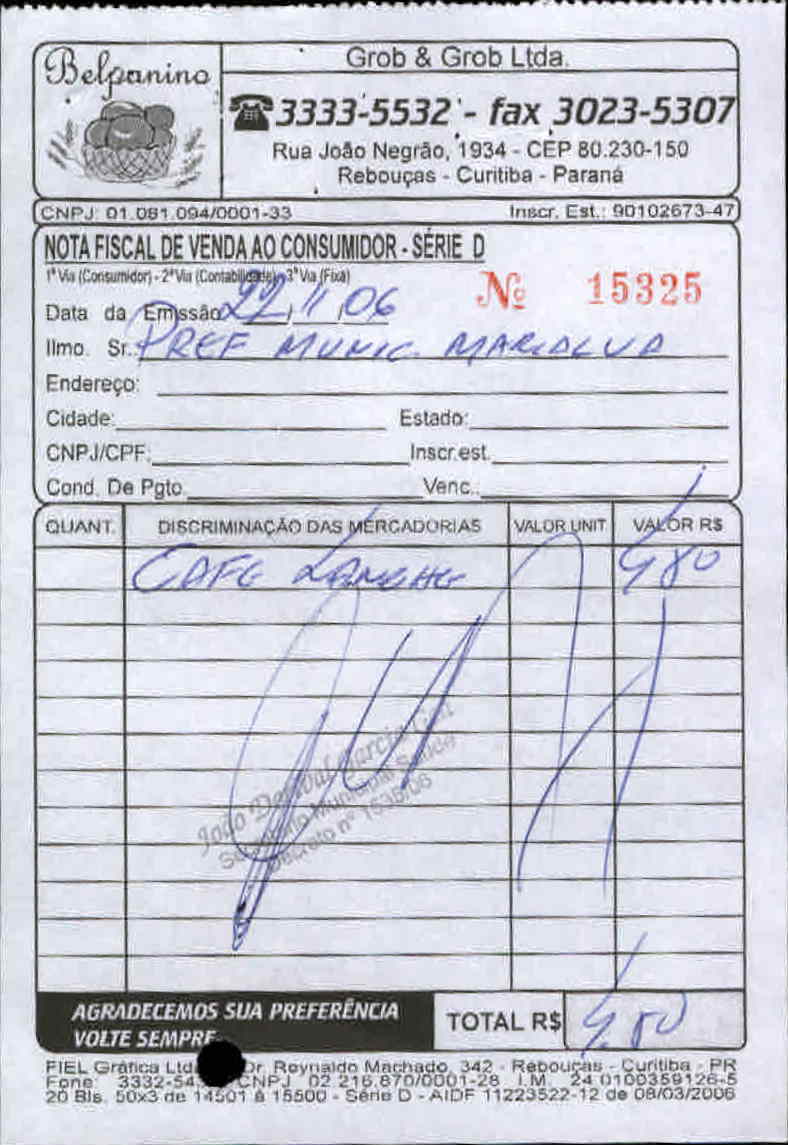 Belpanino
Grob & Grob Ltda.
3333-5532 - fax 3023-5307
Rua João Negrão, 1934 - CEP 80.230-150
Rebouças - Curitiba - Paraná
CNPJ: 01.081.094/0001-33 Inscr. Est.: 90102673-47
NOTA FISCAL DE VENDA AO CONSUMIDOR - SÉRIE D
1ª Via (Consumidor) - 2ª Via (Contabilidade) - 3ª Via (Fixa)
Nº 15325
Data da Emissão 22/11/06
Ilmo. Sr.: PREF MUNIC. MARIALVA
Endereço:
Cidade: Estado:
CNPJ/CPF: Inscr.est.
Cond. De Pgto. Venc.:
QUANT. DISCRIMINAÇÃO DAS MERCADORIAS VALOR UNIT. VALOR R$
CAFE LANCHE 4,80
João Dorival Garcia
Secretário Municipal Saúde
Decreto nº 1535/06
AGRADECEMOS SUA PREFERÊNCIA
VOLTE SEMPRE
TOTAL R$ 4,80
FIEL Gráfica Ltda Dr. Reynaldo Machado, 342 - Rebouças - Curitiba - PR
Fone: CNPJ 02.216.870/0001-28 I.M. 24.0100359126-5
20 Bls. 50x3 de 14501 à 15500 - Série D - AIDF 11223522-12 de 08/03/2006